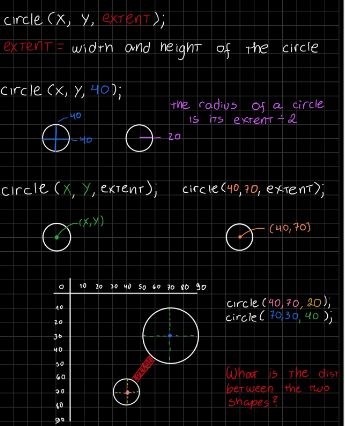 circle(X, Y, EXTENT);
EXTENT = width and height of the circle
circle(X, Y, 40);
40
40
the radius of a circle
is its extent ÷ 2
20
circle(X, Y, EXTENT);
circle(40,70, EXTENT);
(X,Y)
(40,70)
0 10 20 30 40 50 60 70 80 90
10
20
30
40
50
60
70
80
90
circle(40,70,20);
circle(70,30,40);
What is the dist
between the two
shapes?